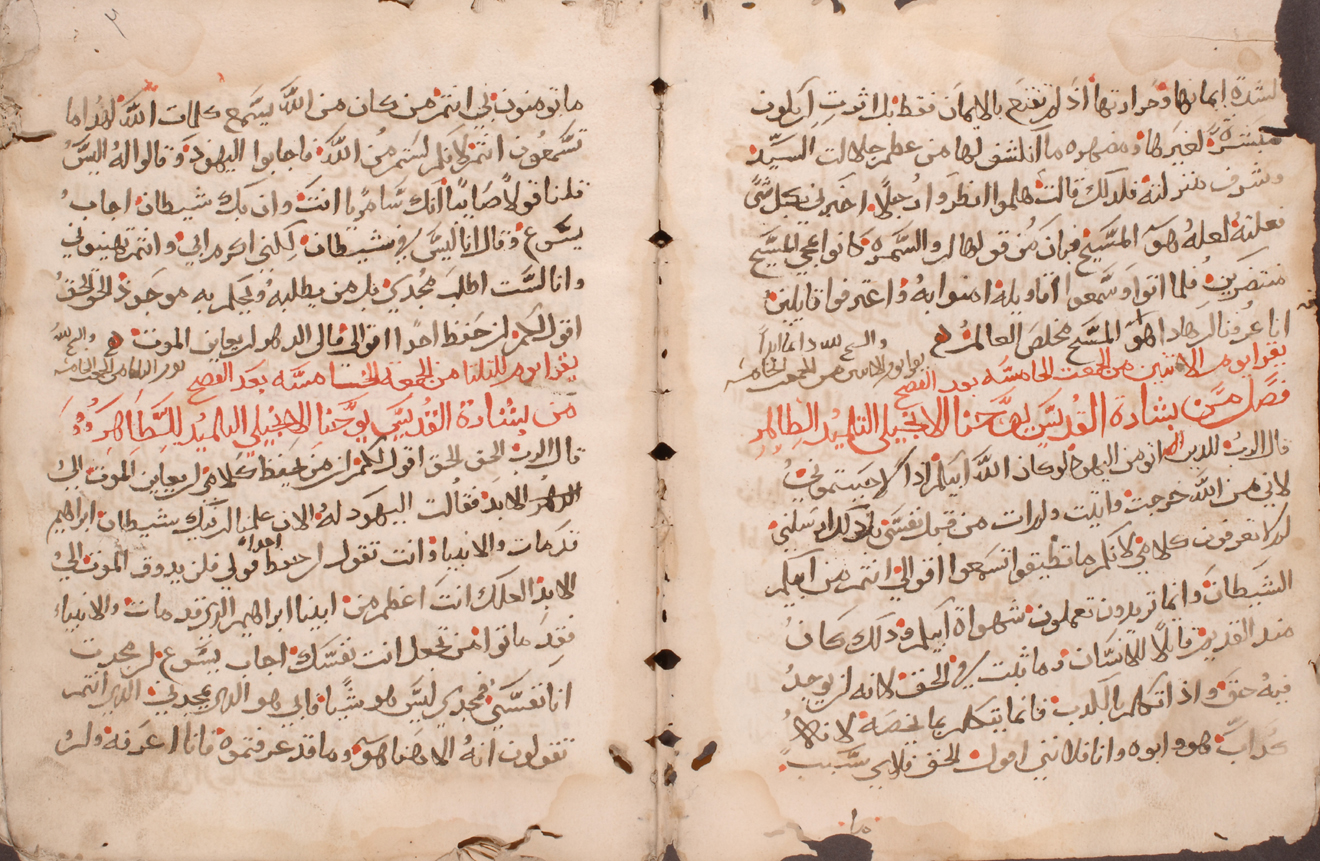 لشدة ايمانها وحرارتها اذ لم تقنع بالايمان فقط بل اثرت ان تكون
مبشرة لغيرها ومضهره ما انكشف لها من عظم جلالت السيد
وشرف منزلته فلدلك قالت هلموا انظروا رجلا اخبرني بكل شى
فعلته لعله هو المسيح فبان من قولها ان السمره كانوا لمجي المسيح
منتضرين فلما اتوا وسمعوا اقاويله امنوا به واعترفوا قايلين
اننا عرفنا ان هدا هو المسيح مخلص العالم
والسبح لله دايما ابدا
يقرا يوم الاتنين من الجمعت الخامسه بعد الفصح
يوم الاتنين من الجمعت الخامسه
فصل من بشارة القديس يوحنا الانجيلي التلميد الطاهر
قال الرب للدين اتو من اليهود لو كان الله ابيكم ادا كنتم تحبوني
لاني من الله خرجت واتيت ولم ات من قبل نفسي بل داك ارسلني
لم لا تعرفون كلامي لانكم ما تطيقوا تسمعوا اقوالي انتم من ابيكم
الشيطان وانما تريدون تعملون شهواة ابيكم ودلك كان
مند القديم قاتلا للانسان وما تبت في الحق لانه لم يوجد
فيه حق واذا تكلم بالكدب فانما يتكلم بما يخصه لانه
كداب هو وابوه وانا فلانني اقول الحق فلاي سبب
ما تومنون بي انتم من كان من الله يسمع كلمات الله لهدا ما
تسمعون انتم لانكم لستم من الله فاجابوا اليهود وقالوا له اليس
قلنا قولا صايبا انك سامريا انت وان بك شيطان اجاب
يسوع وقال انا ليس في شيطان لكني اكرم ابي وانتم تهينوني
وانا لست اطلب مجدي بل من يطلبه ويحكم به موجود الحق الحق
اقول لكم ان حفظ احدا اقوالي قال الدهر لم يعاين الموت
والسبح لله
يقرا يوم التلتا من الجمعه الخامسه بعد الفصح
يوم التلتا من الجمعت الخامسه
من بشارة القديس يوحنا الانجيلي التلميد الطاهر
قال الرب الحق الحق اقول لكم ان من يحفظ كلامي لم يعاين الموت الى
الدهر الابد فقالت اليهود له الان علمنا ان بك شيطان ابراهيم
قد مات والانبيا وانت تقول ان حفظ احدا قولي فلن يدوق الموت الى
الابد العلك انت اعظم من ابينا ابراهيم الدي قد مات والانبياء
فقد ماتوا من تجعل انت نفسك اجاب يسوع ان مجدت
انا نفسي فمجدي ليس هو شيا فابي هو الدي يمجدني الدي انتم
تقولون انه الاهنا هو وما قد عرفتموه فانا اعرفه وان